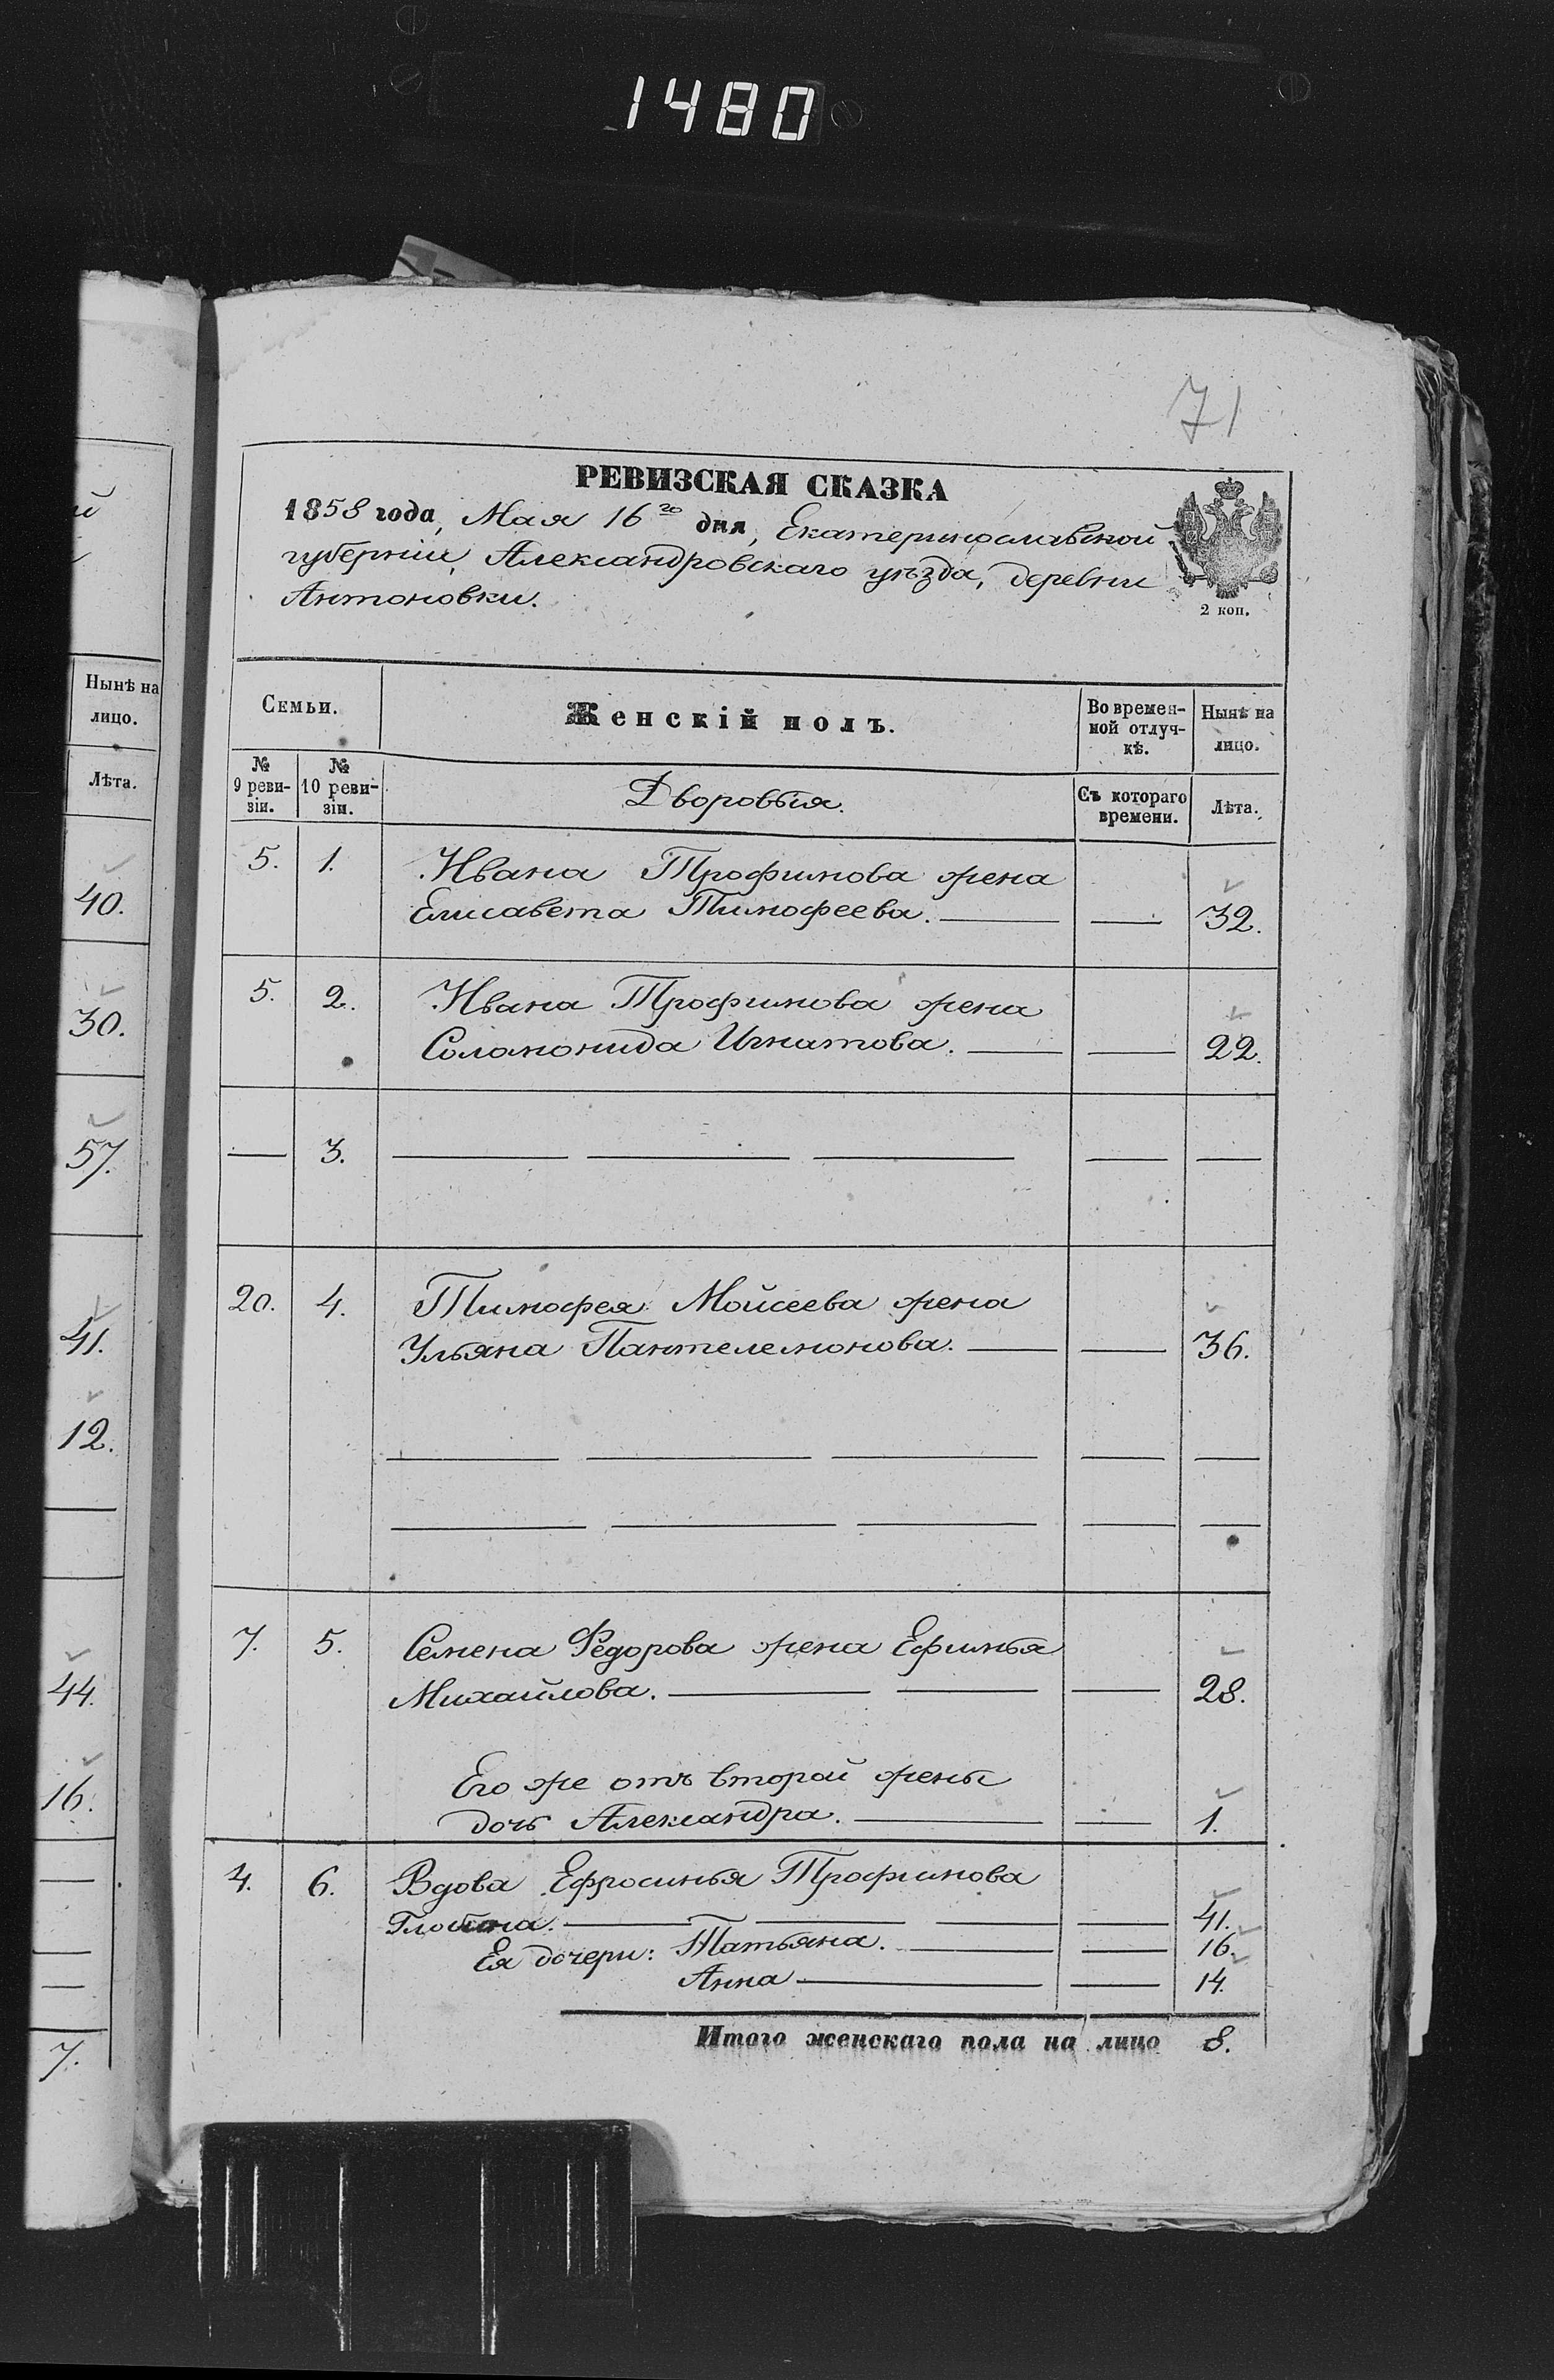 1480
71
РЕВИЗСКАЯ СКАЗКА
1858 года, Мая 16го дня, Екатеринославской
губерніи, Александровскаго уѣзда, деревни
Антоновки.
2 коп.
Нынѣ на
лицо.
Лѣта.
40.
30.
57.
41.
12.
44.
16.
7.
Семьи. Женскій полъ. Во времен-ной отлуч-кѣ. Нынѣ на лицо.
№ 9 реви-зіи. № 10 реви-зіи. Дворовыя. Съ котораго времени. Лѣта.
5. 1. Ивана Трофимова жена
Елисавета Тимофеева. — — 32.
5. 2. Ивана Трофимова жена
Соломонида Игнатова. — — 22.
— 3. — — — — —
20. 4. Тимофея Мойсеева жена
Ульяна Пантелемонова. — — 36.
— — — — —
— — — — —
7. 5. Семена Федорова жена Ефимья
Михайлова. — — — 28.
Его же отъ второй жены
дочь Александра. — — 1.
4. 6. Вдова Ефросинья Трофимова
— — — — 41.
Ея дочери: Татьяна. — — 16.
Анна — — 14.
Итого женскаго пола на лицо 8.